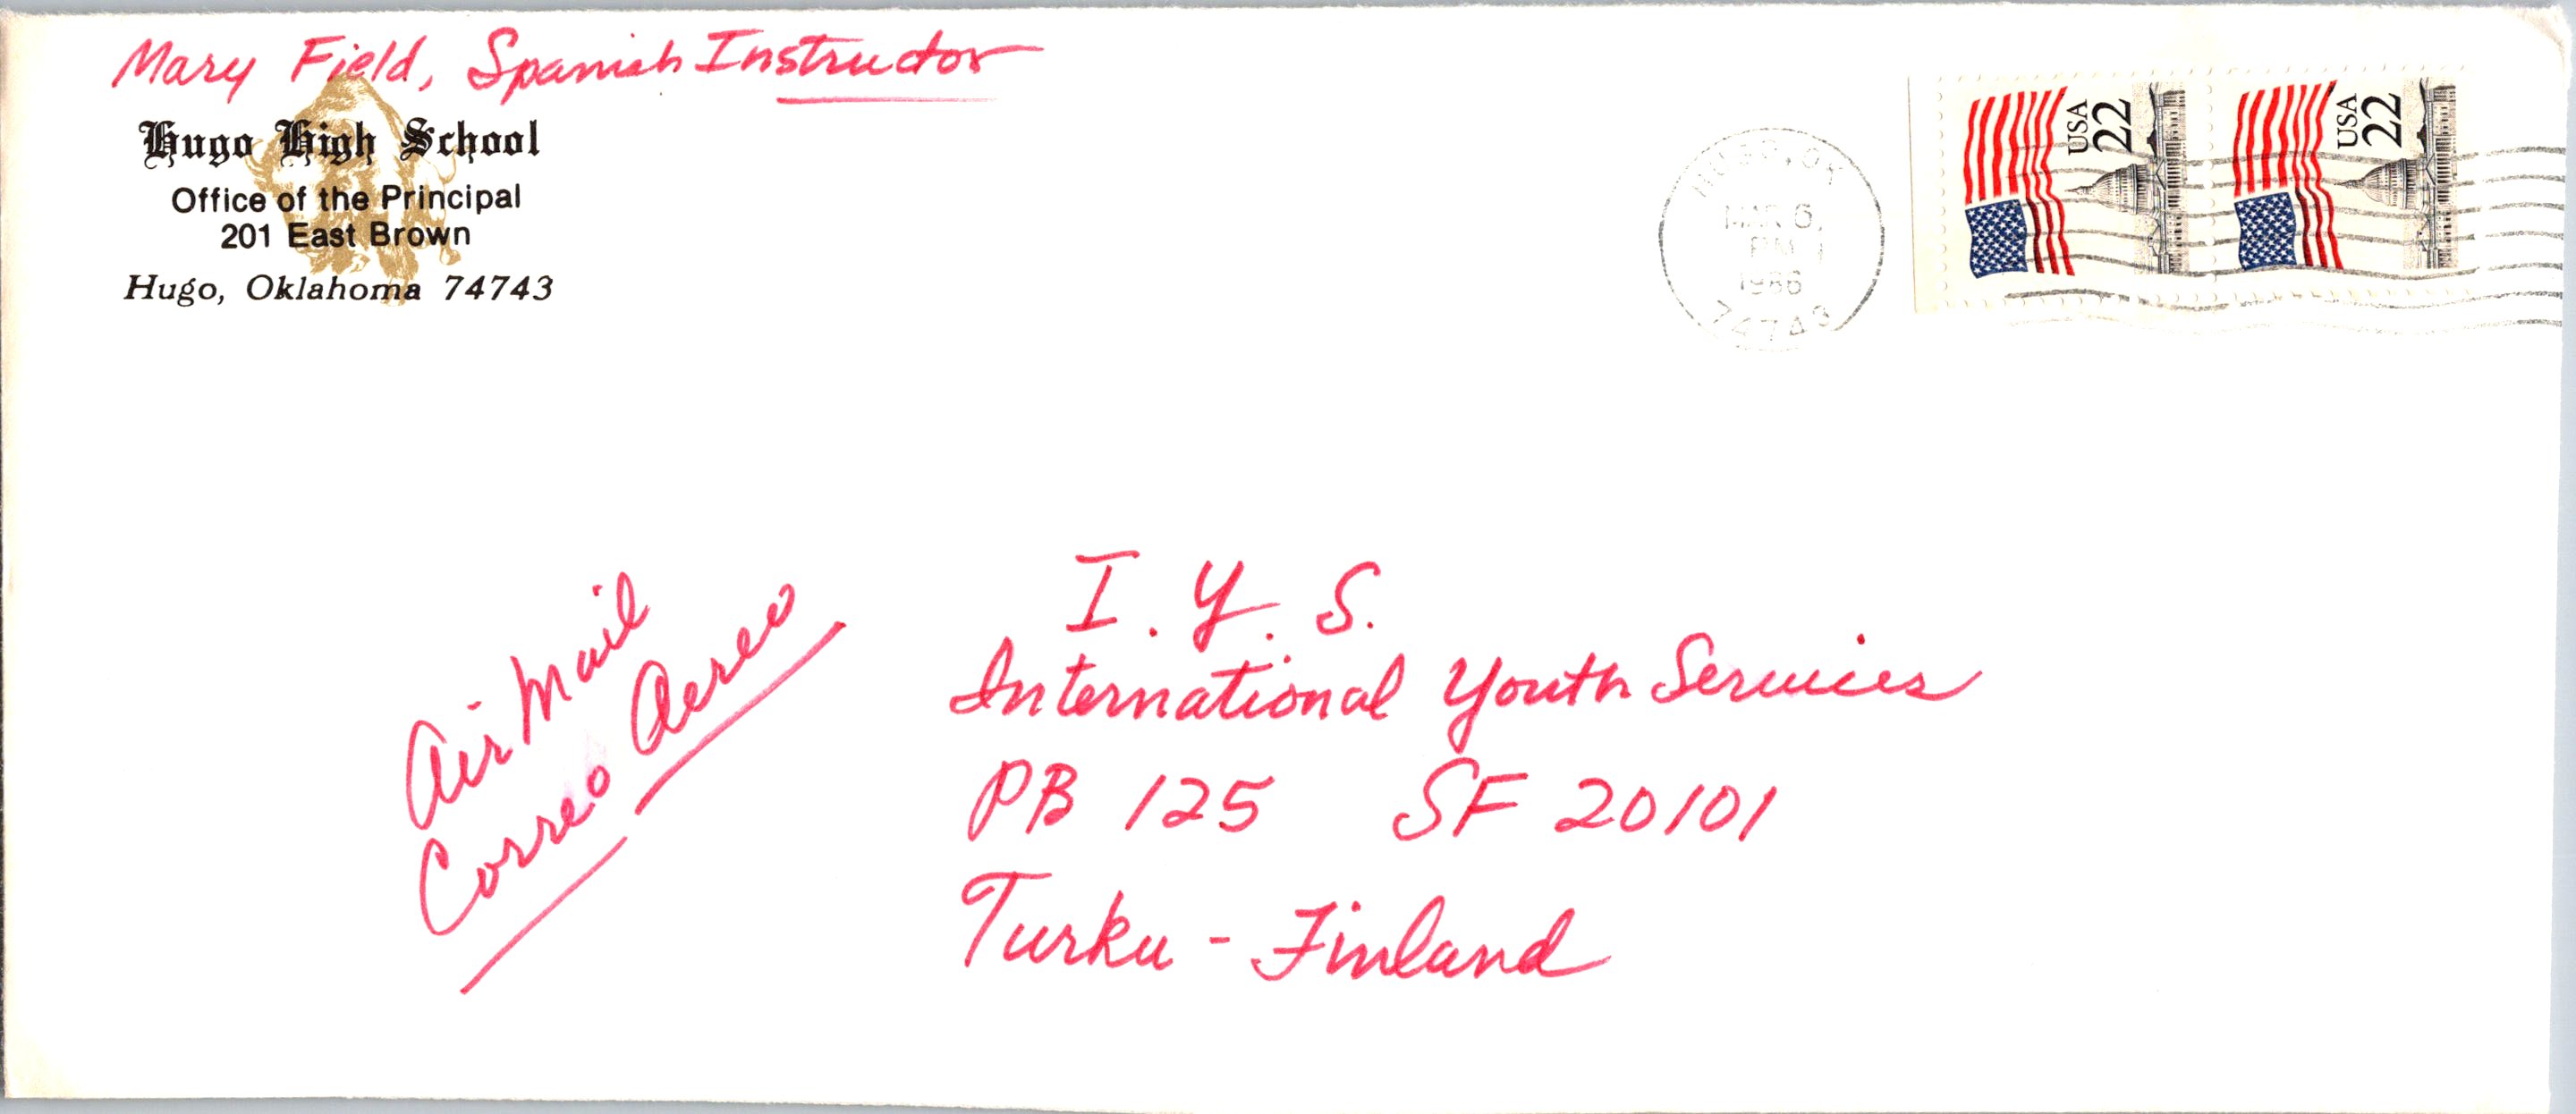 Mary Field, Spanish Instructor
Hugo High School
Office of the Principal
201 East Brown
Hugo, Oklahoma 74743
HUGO, OK
MAR 6,
PM
1986
74743
USA
22
USA
22
Air Mail
Correo Aereo
I. Y. S.
International Youth Services
PB 125 SF 20101
Turku - Finland